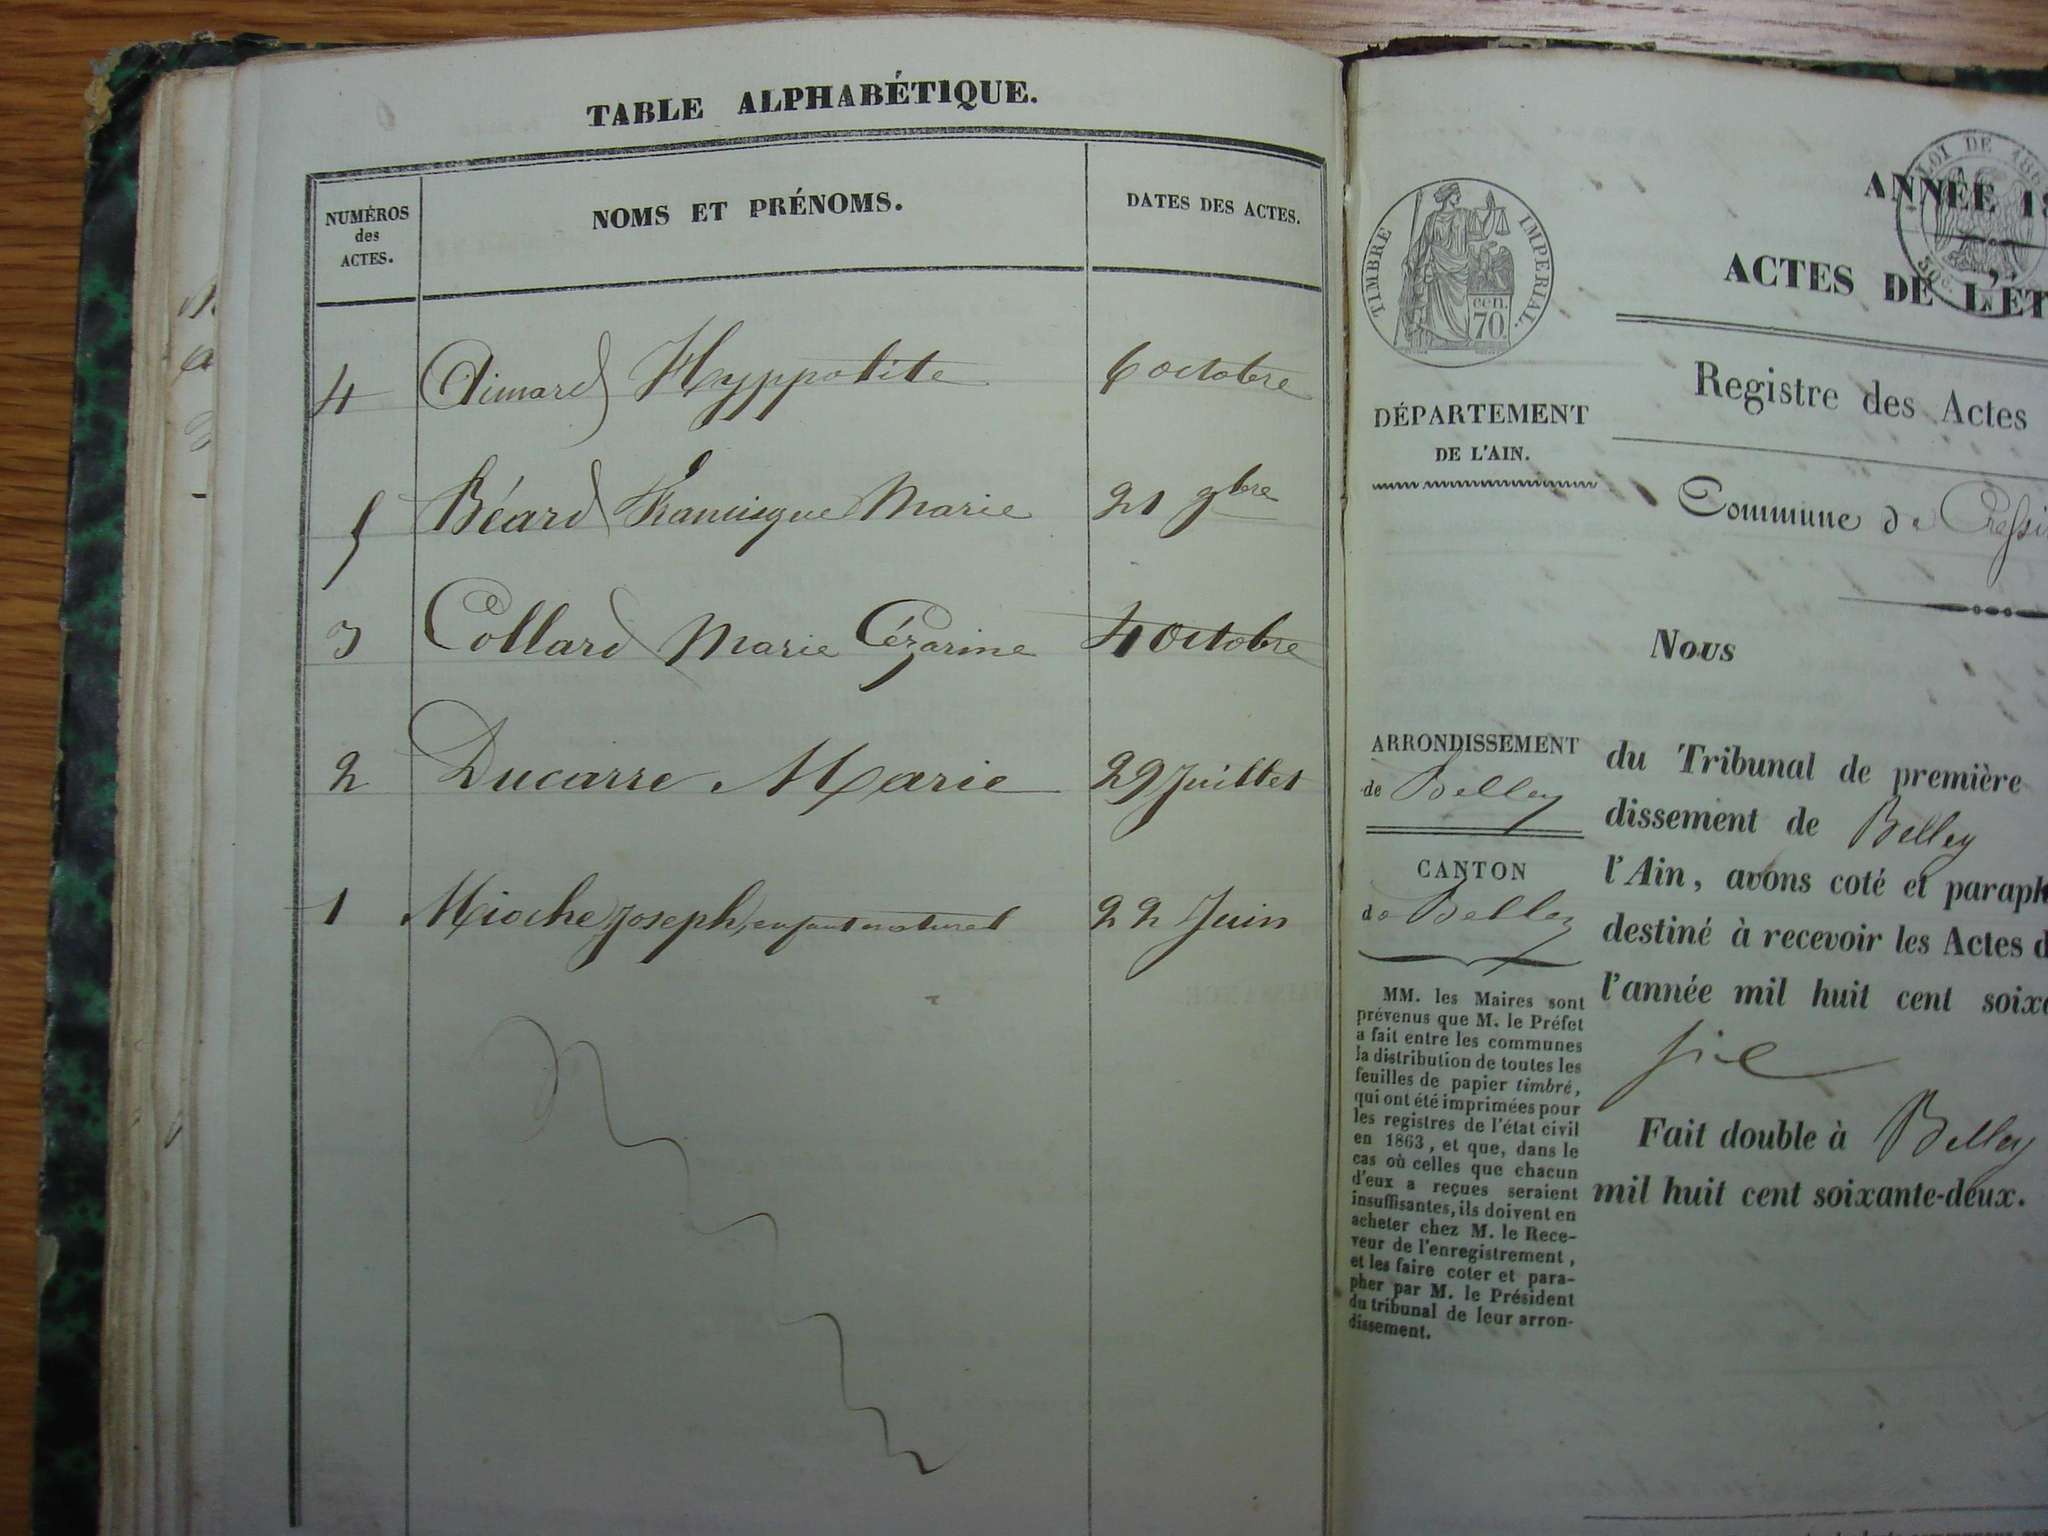 TABLE ALPHABÉTIQUE.
NUMÉROS
des
ACTES.
NOMS ET PRÉNOMS.
DATES DES ACTES.
4 Aimard Hyppolite 6 octobre
5 Béard Francisque Marie 21 9bre
3 Collard Marie Cézarine 4 octobre
2 Ducarre Marie 29 Juillet
1 Mioche Joseph, enfant naturel 22 Juin
LOI DE 186
ANNÉE 18
TIMBRE IMPERIAL.
cen.
70.
ACTES DE L'ÉT
Registre des Actes
DÉPARTEMENT
DE L'AIN.
Commune de Cressi
Nous
ARRONDISSEMENT
de Belley
CANTON
de Belley
MM. les Maires sont
prévenus que M. le Préfet
a fait entre les communes
la distribution de toutes les
feuilles de papier timbré,
qui ont été imprimées pour
les registres de l'état civil
en 1863, et que, dans le
cas où celles que chacun
d'eux a reçues seraient
insuffisantes, ils doivent en
acheter chez M. le Rece-
veur de l'enregistrement,
et les faire coter et para-
pher par M. le Président
du tribunal de leur arron-
dissement.
du Tribunal de première
dissement de Belley
l'Ain, avons coté et paraph
destiné à recevoir les Actes d
l'année mil huit cent soixa
Fait double à Belley
mil huit cent soixante-deux.